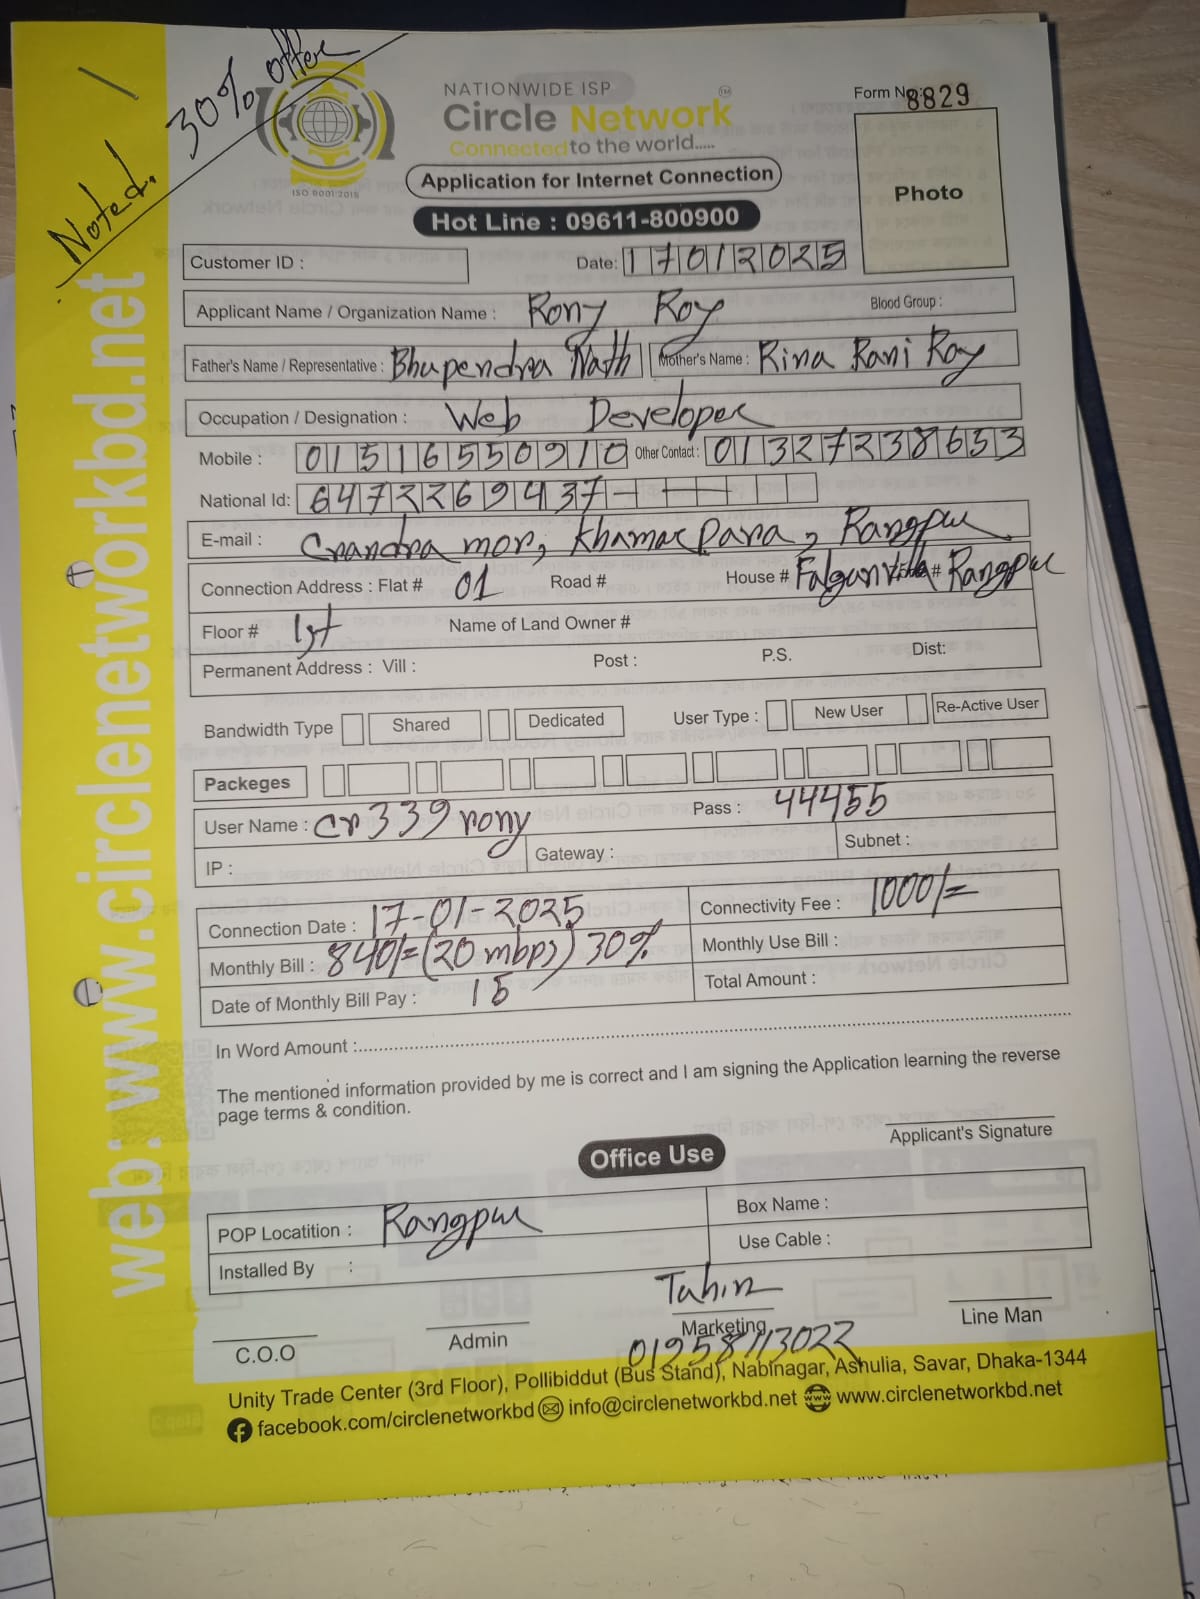 Noted. 30% offer
NATIONWIDE ISP
Circle Network
Connected to the world.....
ISO 9001:2015
Form No: 8829
Photo
Application for Internet Connection
Hot Line : 09611-800900
Customer ID :
Date: 17012025
Applicant Name / Organization Name : Rony Roy Blood Group :
Father's Name / Representative : Bhupendra Nath Mother's Name : Rina Rani Roy
Occupation / Designation : Web Developer
Mobile : 01516550910 Other Contact : 01327238653
National Id: 6472269437
E-mail : Crandra mor, Khamar Para, Rangpur
Connection Address : Flat # 01 Road # House # Falgun Villa # Rangpur
Floor # 1st Name of Land Owner #
Permanent Address : Vill : Post : P.S. Dist:
Bandwidth Type Shared Dedicated User Type : New User Re-Active User
Packeges
User Name : cr339rony Pass : 44455
IP : Gateway : Subnet :
Connection Date : 17-01-2025 Connectivity Fee : 1000/=
Monthly Bill : 840/= (20 mbps) 30% Monthly Use Bill :
Date of Monthly Bill Pay : 15 Total Amount :
In Word Amount :
The mentioned information provided by me is correct and I am signing the Application learning the reverse
page terms & condition.
Applicant's Signature
Office Use
POP Locatition : Rangpur Box Name :
Installed By : Use Cable :
Tuhin
C.O.O Admin Marketing Line Man
01958113022
Unity Trade Center (3rd Floor), Pollibiddut (Bus Stand), Nabinagar, Ashulia, Savar, Dhaka-1344
facebook.com/circlenetworkbd info@circlenetworkbd.net www.circlenetworkbd.net
web: www.circlenetworkbd.net